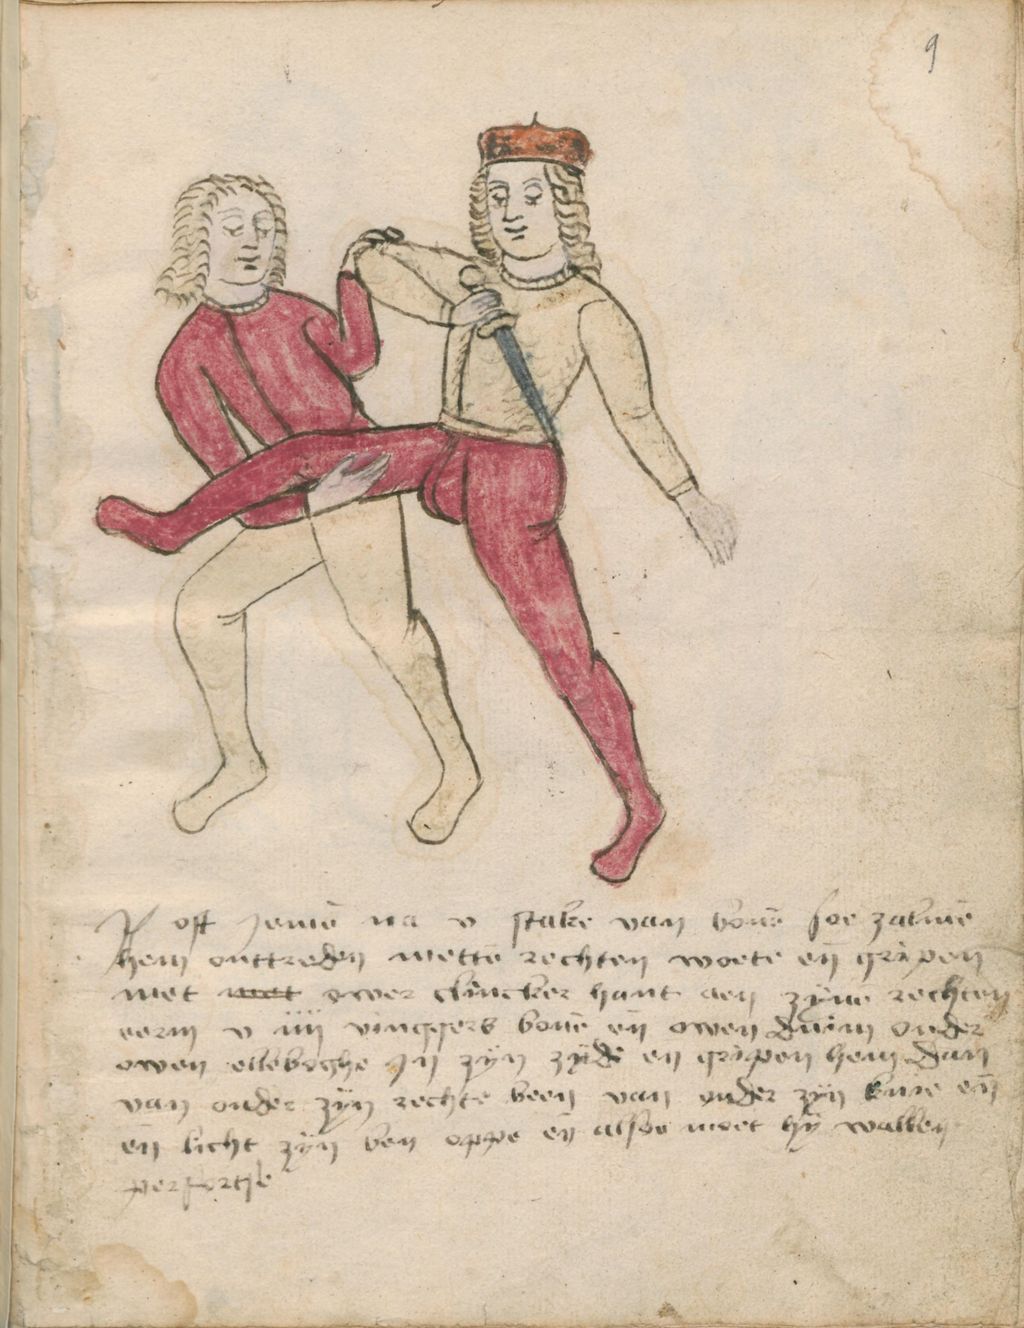 9
oft jemē na v stake van bouē soe zalmē
hem onttreden mettē rechten woete eñ gripen
met met ower slincker hant aen zynē rechten
eerm v iiij vinggers bouē eñ owen duim onder
owen elleboghe jn zÿn zÿdē en gripen hem dan
van onder zÿn rechte been van onder zÿn knie eñ
eñ licht zÿn ben oppe eñ alsoe moet hÿ wallen